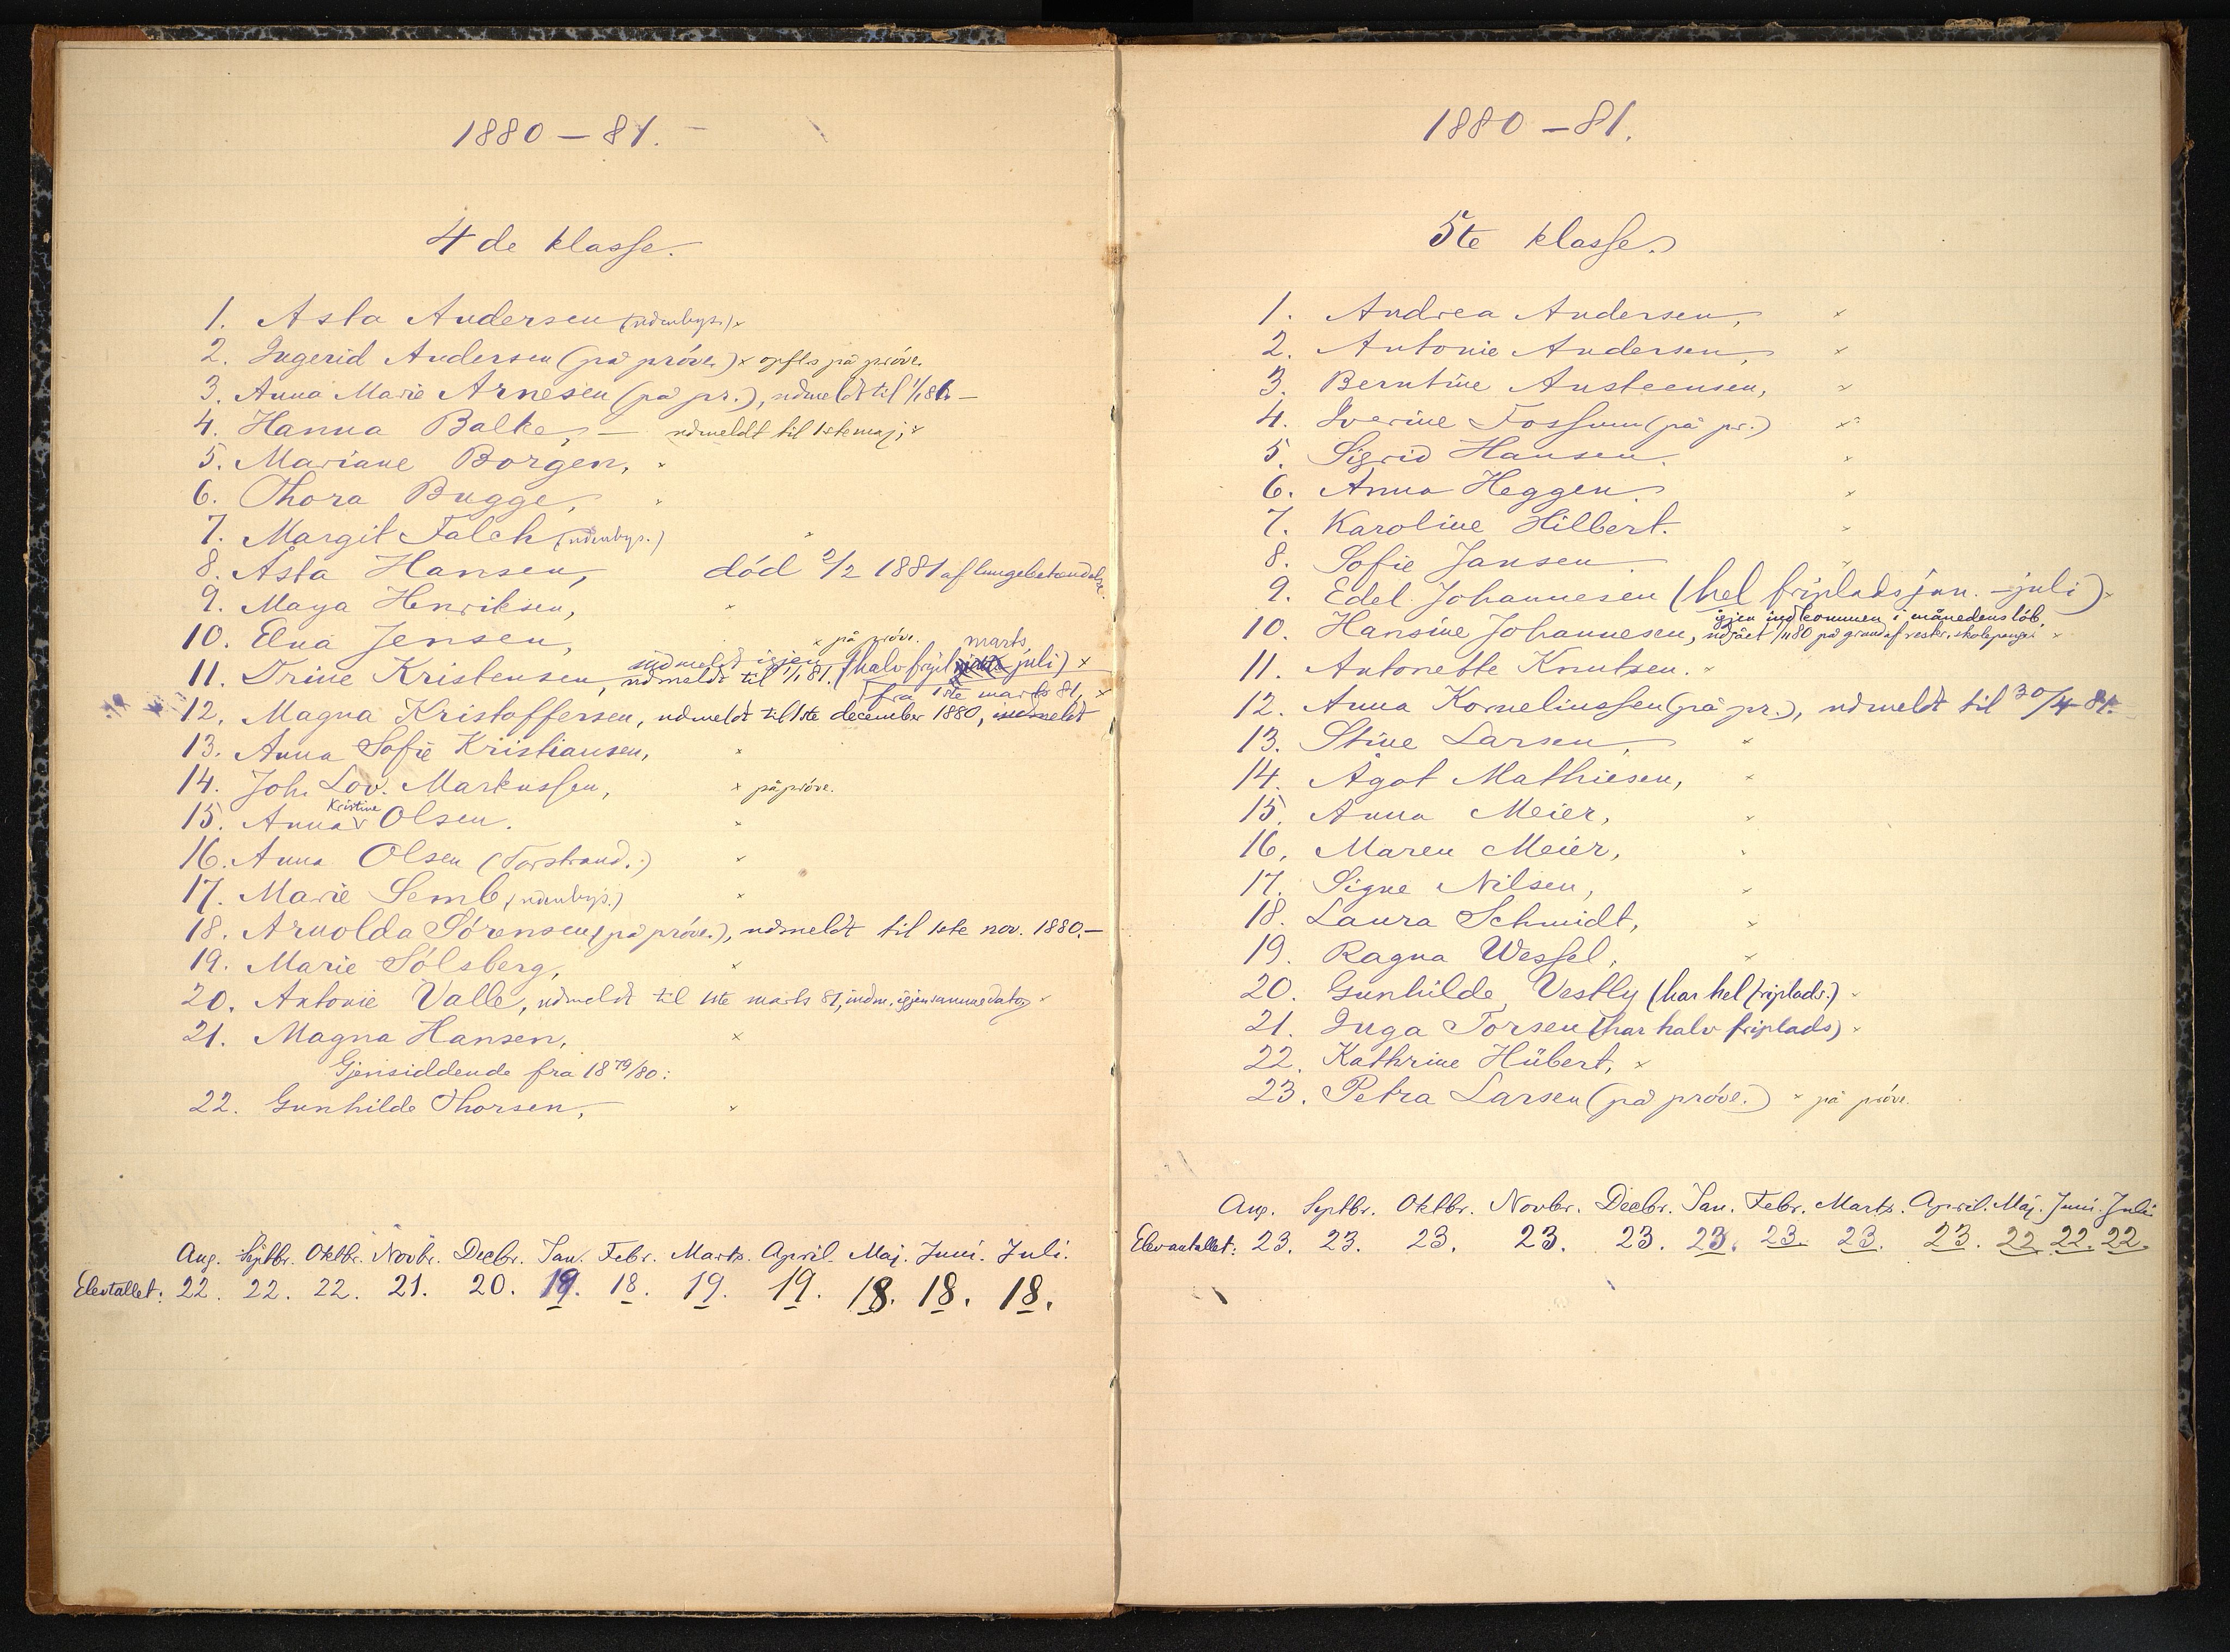 1880 – 81. –
4de klasse.
1. Asta Andersen (udenbys.) ×
2. Ingerid Andersen (på pröve.) × opfl. på pröve.
3. Anna Marie Arnesen (på pr.), udmeldt til 1/1 81. –
4. Hanna Balke, – udmeldt til 1ste maj; ×
5. Mariane Borgen, ×
6. Thora Bugge, ×
7. Margit Falch (udenbys.) ×
8. Åsta Hansen, död 2/2 1881 af lungebetændelse.
9. Maya Henriksen, ×
10. Elna Jensen, × på pröve.
marts
indmeldt igjen (halv fripl. juli) ×
11. Trine Kristensen, udmeldt til 1/1 81.
fra 1ste marts 81, ×
12. Magna Kristoffersen, udmeldt til 1ste december 1880, indmeldt
13. Anna Sofie Kristiansen, ×
14. Joh. Lov. Markussen, × på pröve.
Kristine
15. Anna v Olsen. ×
16. Anna Olsen (Torstrand.) ×
17. Marie Semb (udenbys.) ×
18. Arnolda Sörensen (på pröve.), udmeldt til 1ste nov. 1880. –
19. Marie Sölsberg, ×
20. Antonie Valle, udmeldt til 1ste marts 81, indm. igjen samme dato ×
21. Magna Hansen, ×
Gjensiddende fra 1879/80:
22. Gunhilde Thorsen, ×
Aug. Septbr. Oktbr. Novbr. Decbr. Jan. Febr. Marts. April. Maj. Juni. Juli.
Elevtallet: 22. 22. 22. 21. 20. 19. 18. 19. 19. 18. 18. 18.
1880 – 81.
5te klasse.
1. Andrea Andersen, ×
2. Antonie Andersen, ×
3. Berntine Austeensen, ×
4. Iverine Fossum (på pr.) ×
5. Sigrid Hansen. ×
6. Anna Heggen. ×
7. Karoline Hilbert. ×
8. Sofie Jansen. ×
9. Edel Johannesen (hel friplads jan. – juli) ×
igjen indkommen i månedens löb,
10. Hansine Johannesen, udgået 1/11 80 på grund af restr. skolepenge ×
11. Antonette Knutsen. ×
12. Anna Korneliussen (på pr.), udmeldt til 30/4 81.
13. Stine Larsen, ×
14. Ågot Mathiesen, ×
15. Anna Meier, ×
16. Maren Meier, ×
17. Signe Nilsen, ×
18. Laura Schmidt, ×
19. Ragna Wessel, ×
20. Gunhilde Vestly (har hel friplads.) ×
21. Inga Torsen (har halv friplads) ×
22. Kathrine Hübert, ×
23. Petra Larsen (på pröve.) × på pröve.
Aug. Septbr. Oktbr. Novbr. Decbr. Jan. Febr. Marts. April. Maj. Juni. Juli
Elevantallet: 23. 23. 23. 23. 23. 23. 23. 23. 23. 22. 22. 22.